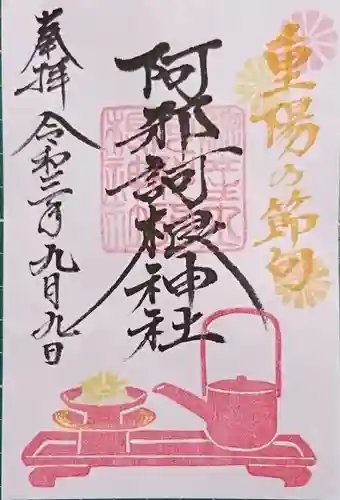 重陽の節句
阿邪訶根神社
奉拝 令和三年九月九日